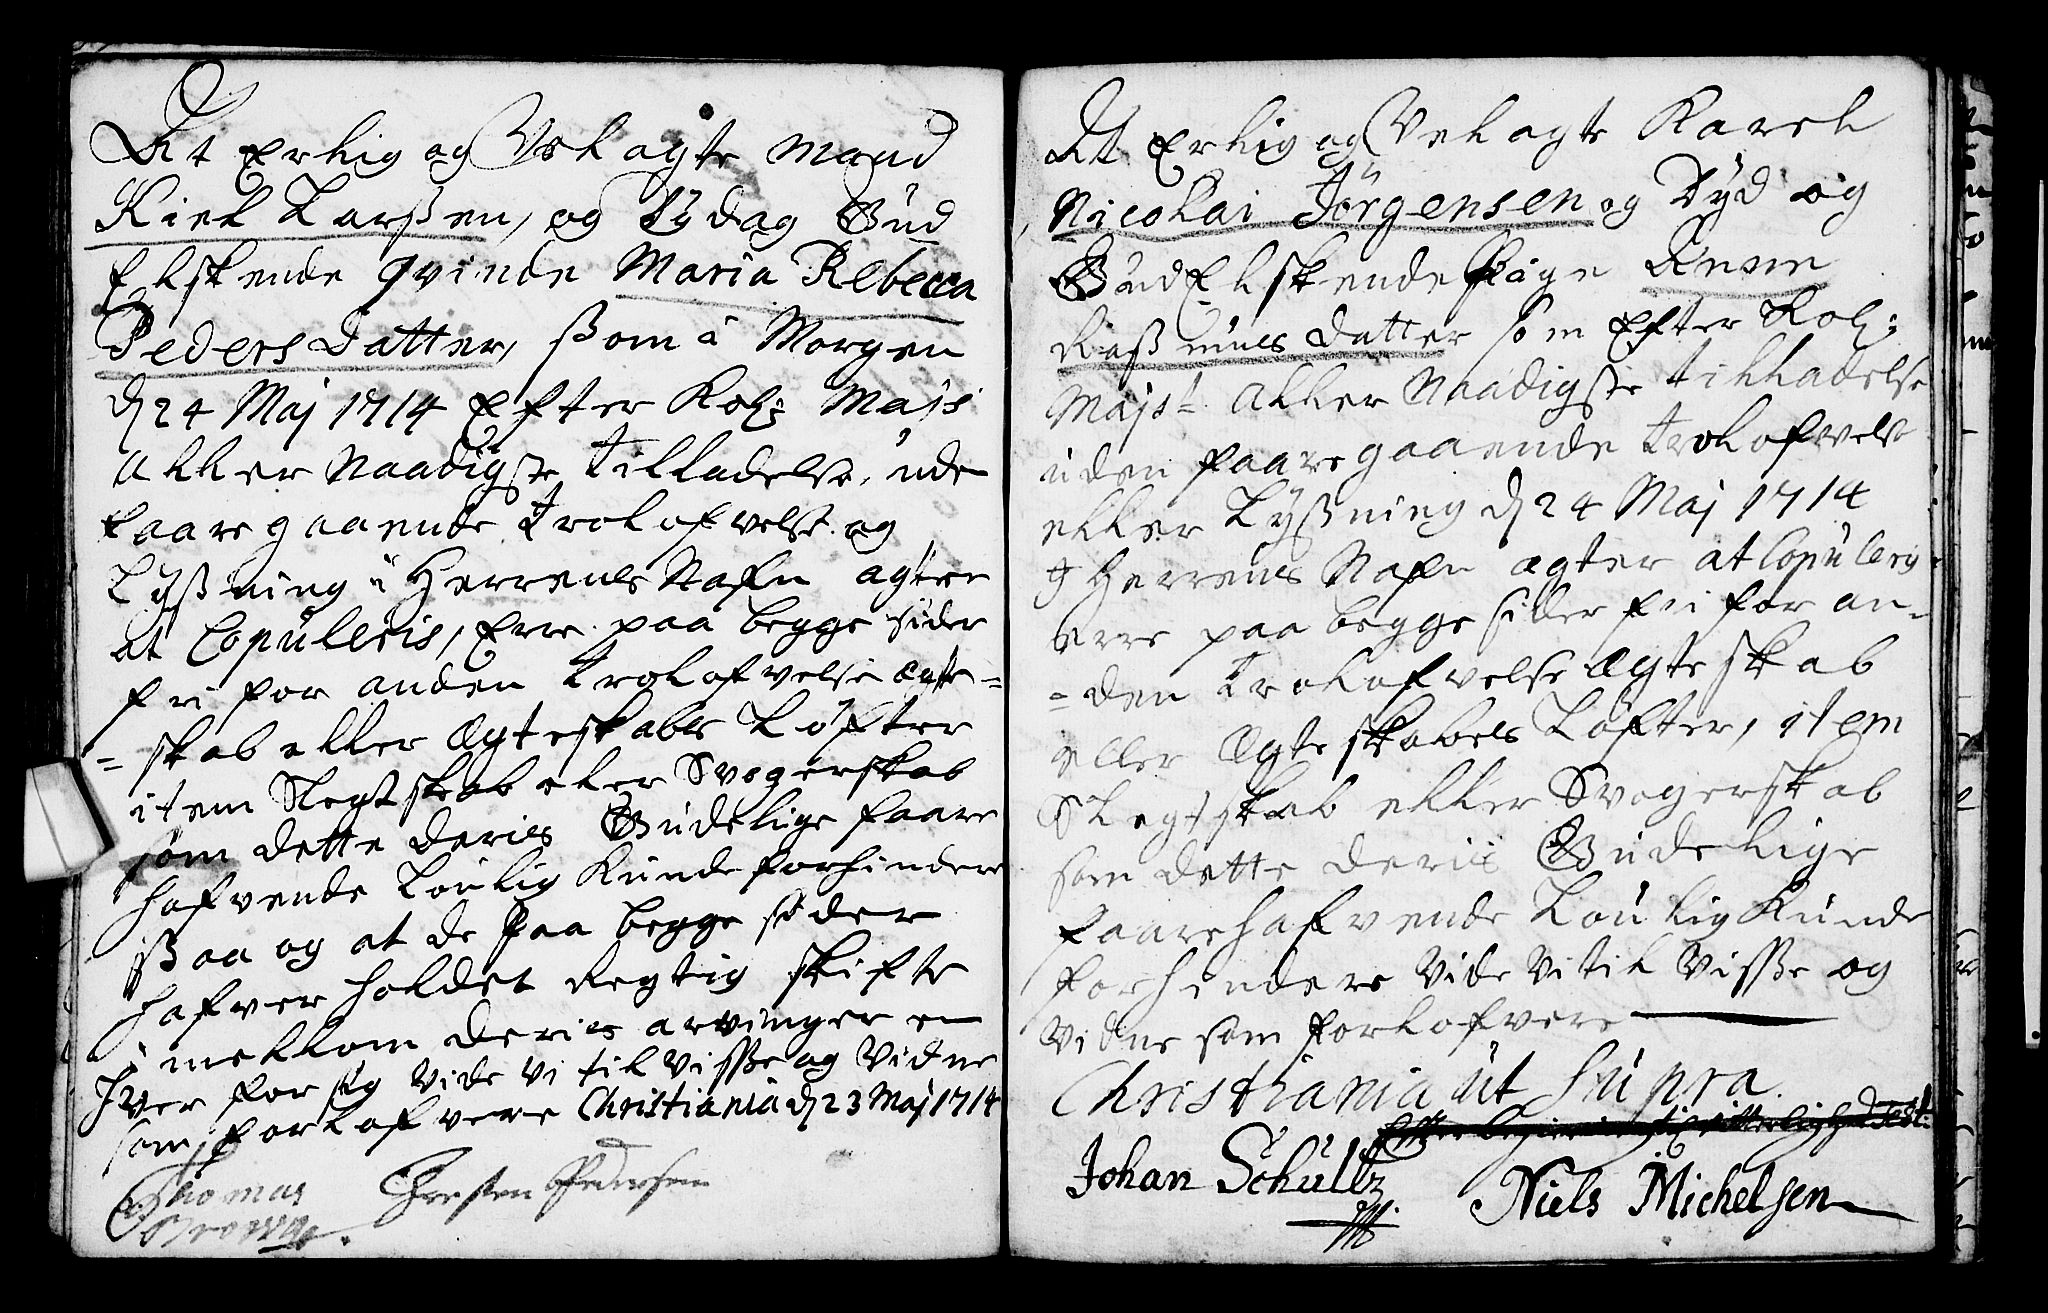 At Erlig og Velagte Mand
Niels Larßen, og Dydag Gud
Elskende Qvinde Maria Rebecca
Peders Datter, ßom i Morgen
d 24 Maj 1714 Efter Kol: Majs
Aller Naadigste tilladelse, uden
faaregaaende Trolofvelse og
Lyßning i Herrens Nafn agter
at Copuleris, Erre paa begge sider
fri for anden Trolofvelse ægte=
=skab eller Ægteskabs Løfter
item Slegtskab eller Svogerskab
som dette deris Gudelige faare
hafvende Loulig Kunde forhindre
ßaa og at de paa begge sider
hafver holdet Regtig skifte
i mellom deris arvinger en
hver for sig Vide Vi til Visße og Vidne
som forlofvere Christiania d 23 Maj 1714
Thomas
Brown. Jversten Pedersen
At Erlig og Velagte Karel
Nicolai Jörgensen og Dyd og
Gud Elskende Pige Anne
Raßmues datter som Efter Kol:
Majst Aller Naadigste tilladelse
uden faaregaaende Trolofvelse
eller Lyßning d 24 Maj 1714
J Herrens Nafn ægter at Copulery
erre paa begge sider fri for an-
=den Trolofvelse Ægteskab
eller Ægteskabels Løfter, item
Slegtskab eller Svogerskab
som dette deris Gudelige
faarehafvende Loulig Kunde
forhindere Vide Vi til Visße og
Vidne som forlofvere
Christiania ut supra.
Johan Schultz Niels Michelsen